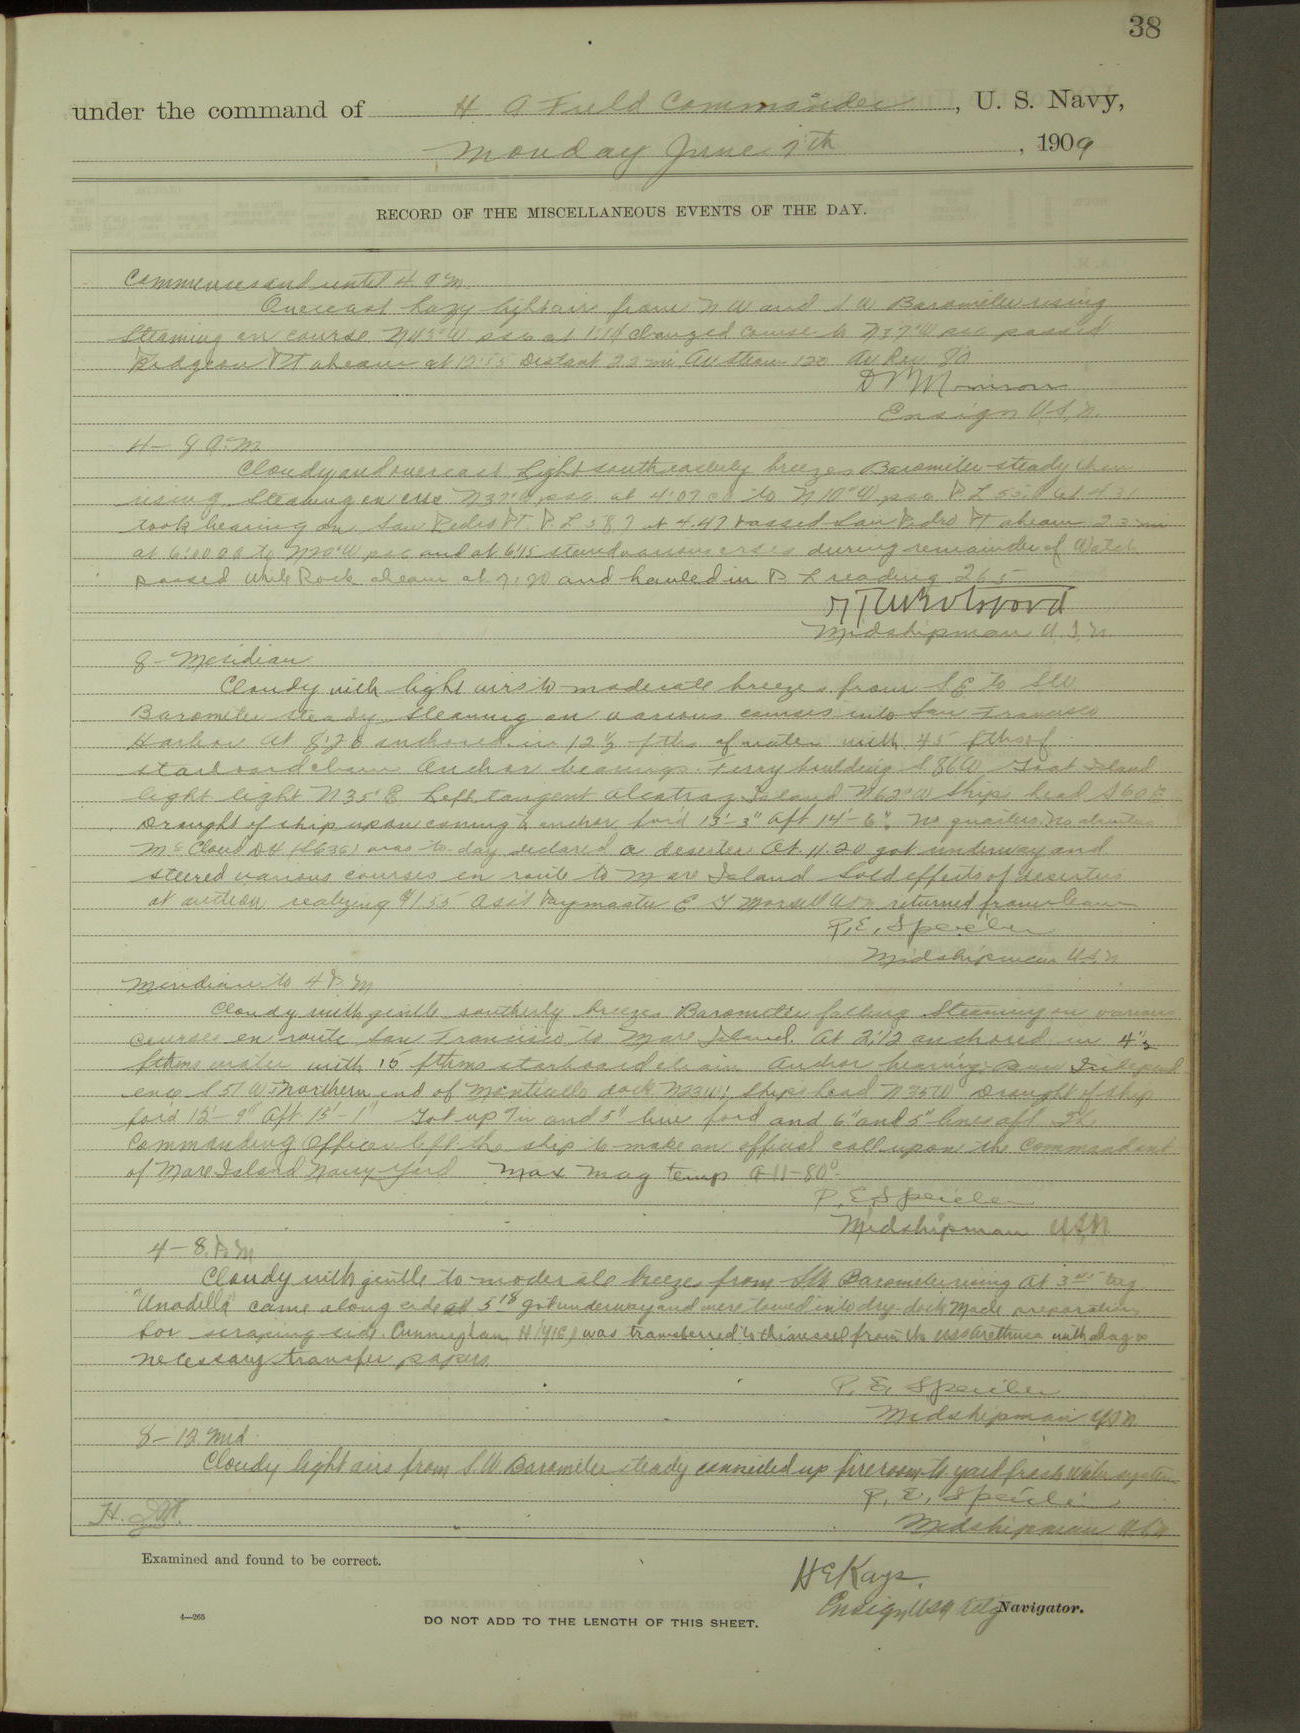 38
under the command of H A Field Commander, U. S. Navy,
Monday June 7th, 1909
RECORD OF THE MISCELLANEOUS EVENTS OF THE DAY.
Commences and until 4 A M.
Overcast hazy light airs from N W and S W Barometer rising
Steaming on course N 43° W psc at 1:14 changed course to N 37° W psc passed
Pidgeon Pt abeam at 12:55 Distant 2.2 mi Av steam 120 Av Rev
Ensign U.S.N.
4 - 8 A.M.
Cloudy and overcast. Light southeasterly breezes Barometer steady then
rising. Steaming on crse N 37° W psc. at 4:07 to N 10° W psc P. L 55.0 at 4:30
took bearing on San Pedro Pt. P. L 58.7 at 4.47 passed San Pedro Pt abeam 2.3 mi
at 6:00 to N 20° W psc and at 6:15 stand various crses during remainder of Watch
Passed Mile Rock abeam at 7:20 and hauled in P. L reading 26.5
Midshipman U.S.N.
8 - Meridian
Cloudy with light airs to moderate breezes from S E to SW
Barometer steady. Steaming on various courses into San Francisco
Harbor At 8:26 anchored in 12 ½ fths of water with 45 fths of
starboard chain Anchor bearings. Ferry building S 86 W Goat Island
light light N 35° E Left tangent Alcatraz Island N 62° W Ships head S 60 E
Draught of ship upon coming to anchor for'd 13'-3" Aft 14'-6". No quarters. No absentees
McCloud D H was to-day declared a deserter At 11.20 got underway and
steered various courses en route to Mare Island Sold effects of deserters
at auction realizing $1.55 Ass't Paymaster E T Morsell USN returned from leave
P. E. Speicher
Midshipman U.S.N
Meridian to 4 P. M
Cloudy with gentle southerly breezes Barometer falling Steaming on various
courses en route San Francisco to Mare Island. At 2:12 anchored in 4 ½
fthms water with 15 fthms starboard chain Anchor bearing: Independ
ence S 51 W: Northern end of Monticello dock N 23 W: Ships head N 35 W Draught of ship
for'd 12'-9" Aft 15'-1" Got up 7 in and 5" line for'd and 6" and 5" lines aft The
Commanding Officer left the ship to make an official call upon the Commandant
of Mare Island Navy Yard Max Mag temp A-11-80°
P. E. Speicher
Midshipman USN
4 - 8. P. M
Cloudy with gentle to moderate breezes from SW Barometer rising At 3 tug
"Unadilla" came along side at 5 18 got underway and were towed into dry-dock Made preparations
for scraping side. Cunningham H was transferred to this vessel from the USS Arethusa with bag &
necessary transfer papers
P. E. Speicher
Midshipman USN
8 - 12 Mid.
Cloudy light airs from S. W. Barometer steady connected up fireroom to yard fresh water system
P. E. Speicher
Midshipman U.S.N
Examined and found to be correct.
H E Kays.
Ensign, USN Act'g Navigator.
4—265
DO NOT ADD TO THE LENGTH OF THIS SHEET.